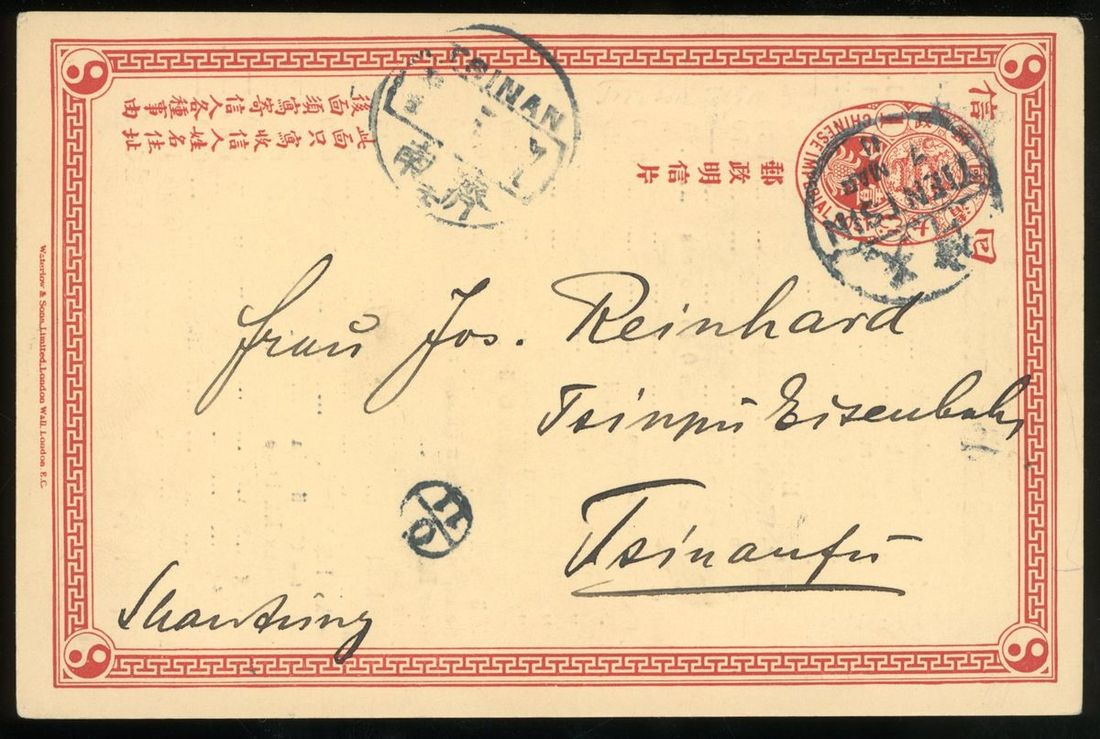 信
回
郵政明信片
此面只寫收信人姓名住址
後面須寫寄信人各種事由
CHINESE IMPERIAL
1
TIENTSIN
7
MAR
11
TSINAN
濟南
Frau Jos. Reinhard
Tsinpu Eisenbahn
Tsinanfu
Shantung
Waterlow & Sons, Limited, London Wall, London E.C.